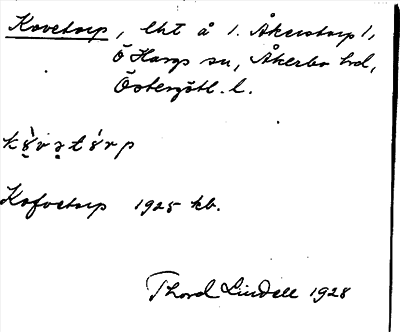 Kovetorp, lht å 1. Åkerstorp 1,
Ö Hargs sn, Åkerbo hd,
Östergötl. l.
Kofvetorp 1925 kb.
Thord Lindell 1928